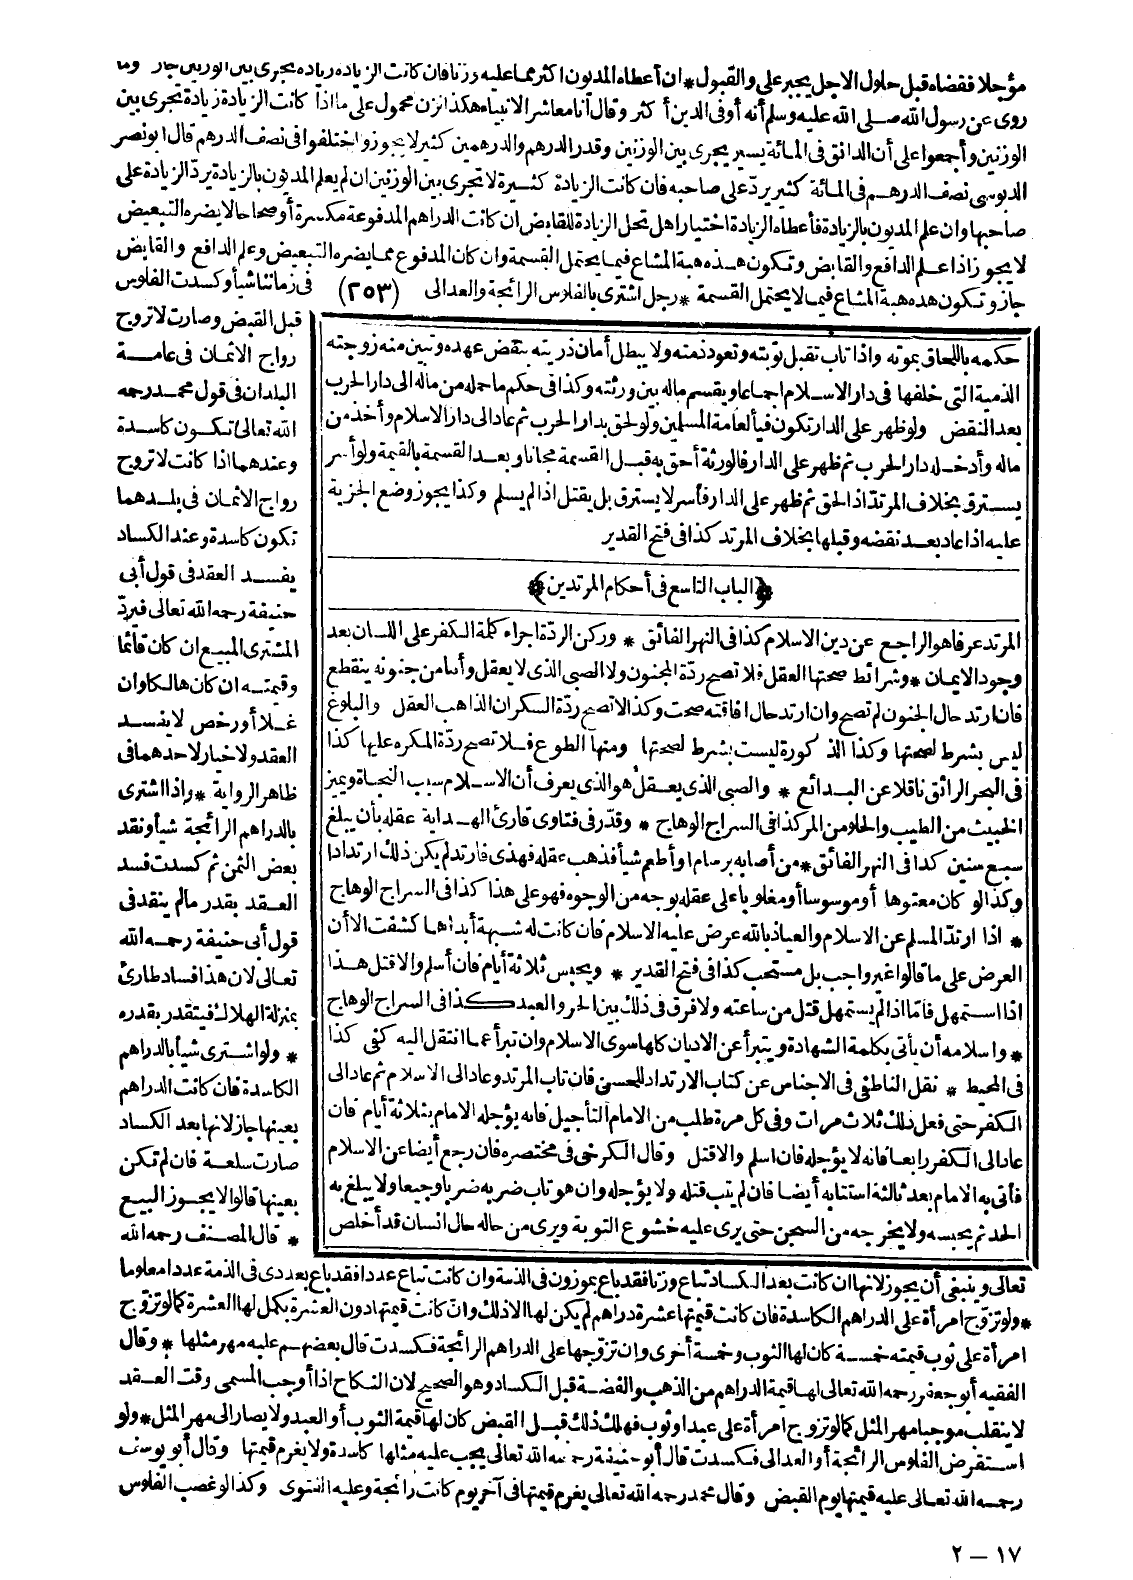 مؤجلا فقضاه قبل حلول الاجل يجبر على القبول * ان أعطاه المديون اكثر مما عليه وزنا فان كانت الزيادة زيادة يجرى بين الوزنين جاز وما
روى عن رسول الله صلى الله عليه وسلم أنه أوفى الدين أكثر وقال أنا معاشر الانبياء هكذا نزن محمول على ما اذا كانت الزيادة زيادة تجرى بين
الوزنين وأجمعوا على أن الدانق فى المائة يسير يجرى بين الوزنين وقدر الدرهم والدرهمين كثير لا يجوز واختلفوا فى نصف الدرهم قال ابو نصر
الدبوسى نصف الدرهم فى المائة كثير يردّ على صاحبه فان كانت الزيادة كثيرة لا تجرى بين الوزنين ان لم يعلم المديون بالزيادة يردّ الزيادة على
صاحبها وان علم المديون بالزيادة فأعطاه الزيادة اختيارا هل تحل الزيادة للقابض ان كانت الدراهم المدفوعة مكسرة أو صحاحا لا يضره التبعيض
لا يجوز اذا علم الدافع والقابض وتكون هذه هبة المشاع فيما يحتمل القسمة وان كان المدفوع مما يضره التبعيض وعلم الدافع والقابض
جاز وتكون هذه هبة المشاع فيما لا يحتمل القسمة * رجل اشترى بالفلوس الرائجة والعدالى (٢٥٣) فى زماننا شيأ وكسدت الفلوس
قبل القبض وصارت لا تروج
رواج الاثمان فى عامة
البلدان فى قول محمد رحمه
الله تعالى تكون كاسدة
وعندهما اذا كانت لا تروج
رواج الاثمان فى بلدهما
تكون كاسدة وعند الكساد
يفسد العقد فى قول أبى
حنيفة رحمه الله تعالى فيردّ
المشترى المبيع ان كان قائما
وقيمته ان كان هالكا وان
غلا أو رخص لا يفسد
العقد ولا خيار لاحدهما فى
ظاهر الرواية * واذا اشترى
بالدراهم الرائجة شيأ ونقد
بعض الثمن ثم كسدت فسد
العقد بقدر ما لم ينقد فى
قول أبى حنيفة رحمه الله
تعالى لان هذا فساد طارئ
بمنزلة الهلاك فيتقدر بقدره
* ولو اشترى شيأ بالدراهم
الكاسدة فان كانت الدراهم
بعينها جاز لانها بعد الكساد
صارت سلعة فان لم تكن
بعينها قالوا لا يجوز البيع
* قال المصنف رحمه الله
حكمه باللحاق بموته واذا تاب تقبل توبته وتعود ذمته ولا يبطل أمان ذريته بنقض عهده وتبين منه زوجته
الذمية التى خلفها فى دار الاسلام اجماعا ويقسم ماله بين ورثته وكذا فى حكم ما حمله من ماله الى دار الحرب
بعد النقض ولو ظهر على الدار تكون فيأ لعامة المسلمين ولو لحق بدار الحرب ثم عاد الى دار الاسلام وأخذ من
ماله وأدخله دار الحرب ثم ظهر على الدار فالورثة أحق به قبل القسمة مجانا وبعد القسمة بالقيمة ولو أسر
يسترق بخلاف المرتد اذا لحق ثم ظهر على الدار فأسر لا يسترق بل يقتل اذا لم يسلم وكذا يجوز وضع الجزية
عليه اذا عاد بعد نقضه وقبلها بخلاف المرتد كذا فى فتح القدير
﴿الباب التاسع فى أحكام المرتدين﴾
المرتد عرفا هو الراجع عن دين الاسلام كذا فى النهر الفائق * وركن الردّة اجراء كلمة الكفر على اللسان بعد
وجود الايمان * وشرائط صحتها العقل فلا تصح ردّة المجنون ولا الصبى الذى لا يعقل وأما من جنونه ينقطع
فان ارتد حال الجنون لم تصح وان ارتد حال افاقته صحت وكذا لا تصح ردّة السكران الذاهب العقل والبلوغ
ليس بشرط لصحتها وكذا الذكورة ليست بشرط لصحتها ومنها الطوع فلا تصح ردّة المكره عليها كذا
فى البحر الرائق ناقلا عن البدائع * والصبى الذى يعقل هو الذى يعرف أن الاسلام سبب النجاة ويميز
الخبيث من الطيب والحلو من المر كذا فى السراج الوهاج * وقدّر فى فتاوى قارئ الهداية عقله بأن يبلغ
سبع سنين كذا فى النهر الفائق * من أصابه برسام او أطعم شيأ فذهب عقله فهذى فارتد لم يكن ذلك ارتدادا
وكذا لو كان معتوها أو موسوسا أو مغلوبا على عقله بوجه من الوجوه فهو على هذا كذا فى السراج الوهاج
* اذا ارتدّ المسلم عن الاسلام والعياذ بالله عرض عليه الاسلام فان كانت له شبهة أبداها كشفت الا أن
العرض على ما قالوا غير واجب بل مستحب كذا فى فتح القدير * ويحبس ثلاثة أيام فان أسلم والا قتل هذا
اذا استمهل فأمّا اذا لم يستمهل قتل من ساعته ولا فرق فى ذلك بين الحر والعبد كذا فى السراج الوهاج
* واسلامه أن يأتى بكلمة الشهادة ويتبرأ عن الاديان كلها سوى الاسلام وان تبرأ عما انتقل اليه كفى كذا
فى المحيط * نقل الناطفى فى الاجناس عن كتاب الارتداد للحسن فان تاب المرتد وعاد الى الاسلام ثم عاد الى
الكفر حتى فعل ذلك ثلاث مرات وفى كل مرة طلب من الامام التأجيل فانه يؤجله الامام بثلاثة أيام فان
عاد الى الكفر رابعا فانه لا يؤجله فان اسلم والا قتل وقال الكرخى فى مختصره فان رجع أيضا عن الاسلام
فأتى به الامام بعد ثالثة استتابه أيضا فان لم يتب قتله ولا يؤجله وان هو تاب ضربه ضربا وجيعا ولا يبلغ به
الحد ثم يحبسه ولا يخرجه من السجن حتى يرى عليه خشوع التوبة ويرى من حاله حال انسان قد أخلص
تعالى وينبغى أن يجوز لانها ان كانت بعد الكساد تباع وزنا فقد باع بموزون فى الذمة وان كانت تباع عددا فقد باع بعددى فى الذمة عددا معلوما
* ولو تزوّج امرأة على الدراهم الكاسدة فان كانت قيمتها عشرة دراهم لم يكن لها الا ذلك وان كانت قيمتها دون العشرة يكمل لها العشرة كما لو تزوّج
امرأة على ثوب قيمته خمسة كان لها الثوب وخمسة أخرى وان تزوجها على الدراهم الرائجة فكسدت قال بعضهم عليه مهر مثلها * وقال
الفقيه أبو جعفر رحمه الله تعالى لها قيمة الدراهم من الذهب والفضة قبل الكساد وهو الصحيح لان النكاح اذا أوجب المسمى وقت العقد
لا ينقلب موجبا مهر المثل كما لو تزوج امرأة على عبد او ثوب فهلك ذلك قبل القبض كان لها قيمة الثوب أو العبد ولا يصار الى مهر المثل * ولو
استقرض الفلوس الرائجة أو العدالى فكسدت قال أبو حنيفة رحمه الله تعالى يجب عليه مثلها كاسدة ولا يغرم قيمتها وقال أبو يوسف
رحمه الله تعالى عليه قيمتها يوم القبض وقال محمد رحمه الله تعالى يغرم قيمتها فى آخر يوم كانت رائجة وعليه الفتوى وكذا لو غصب الفلوس
١٧ – ٢